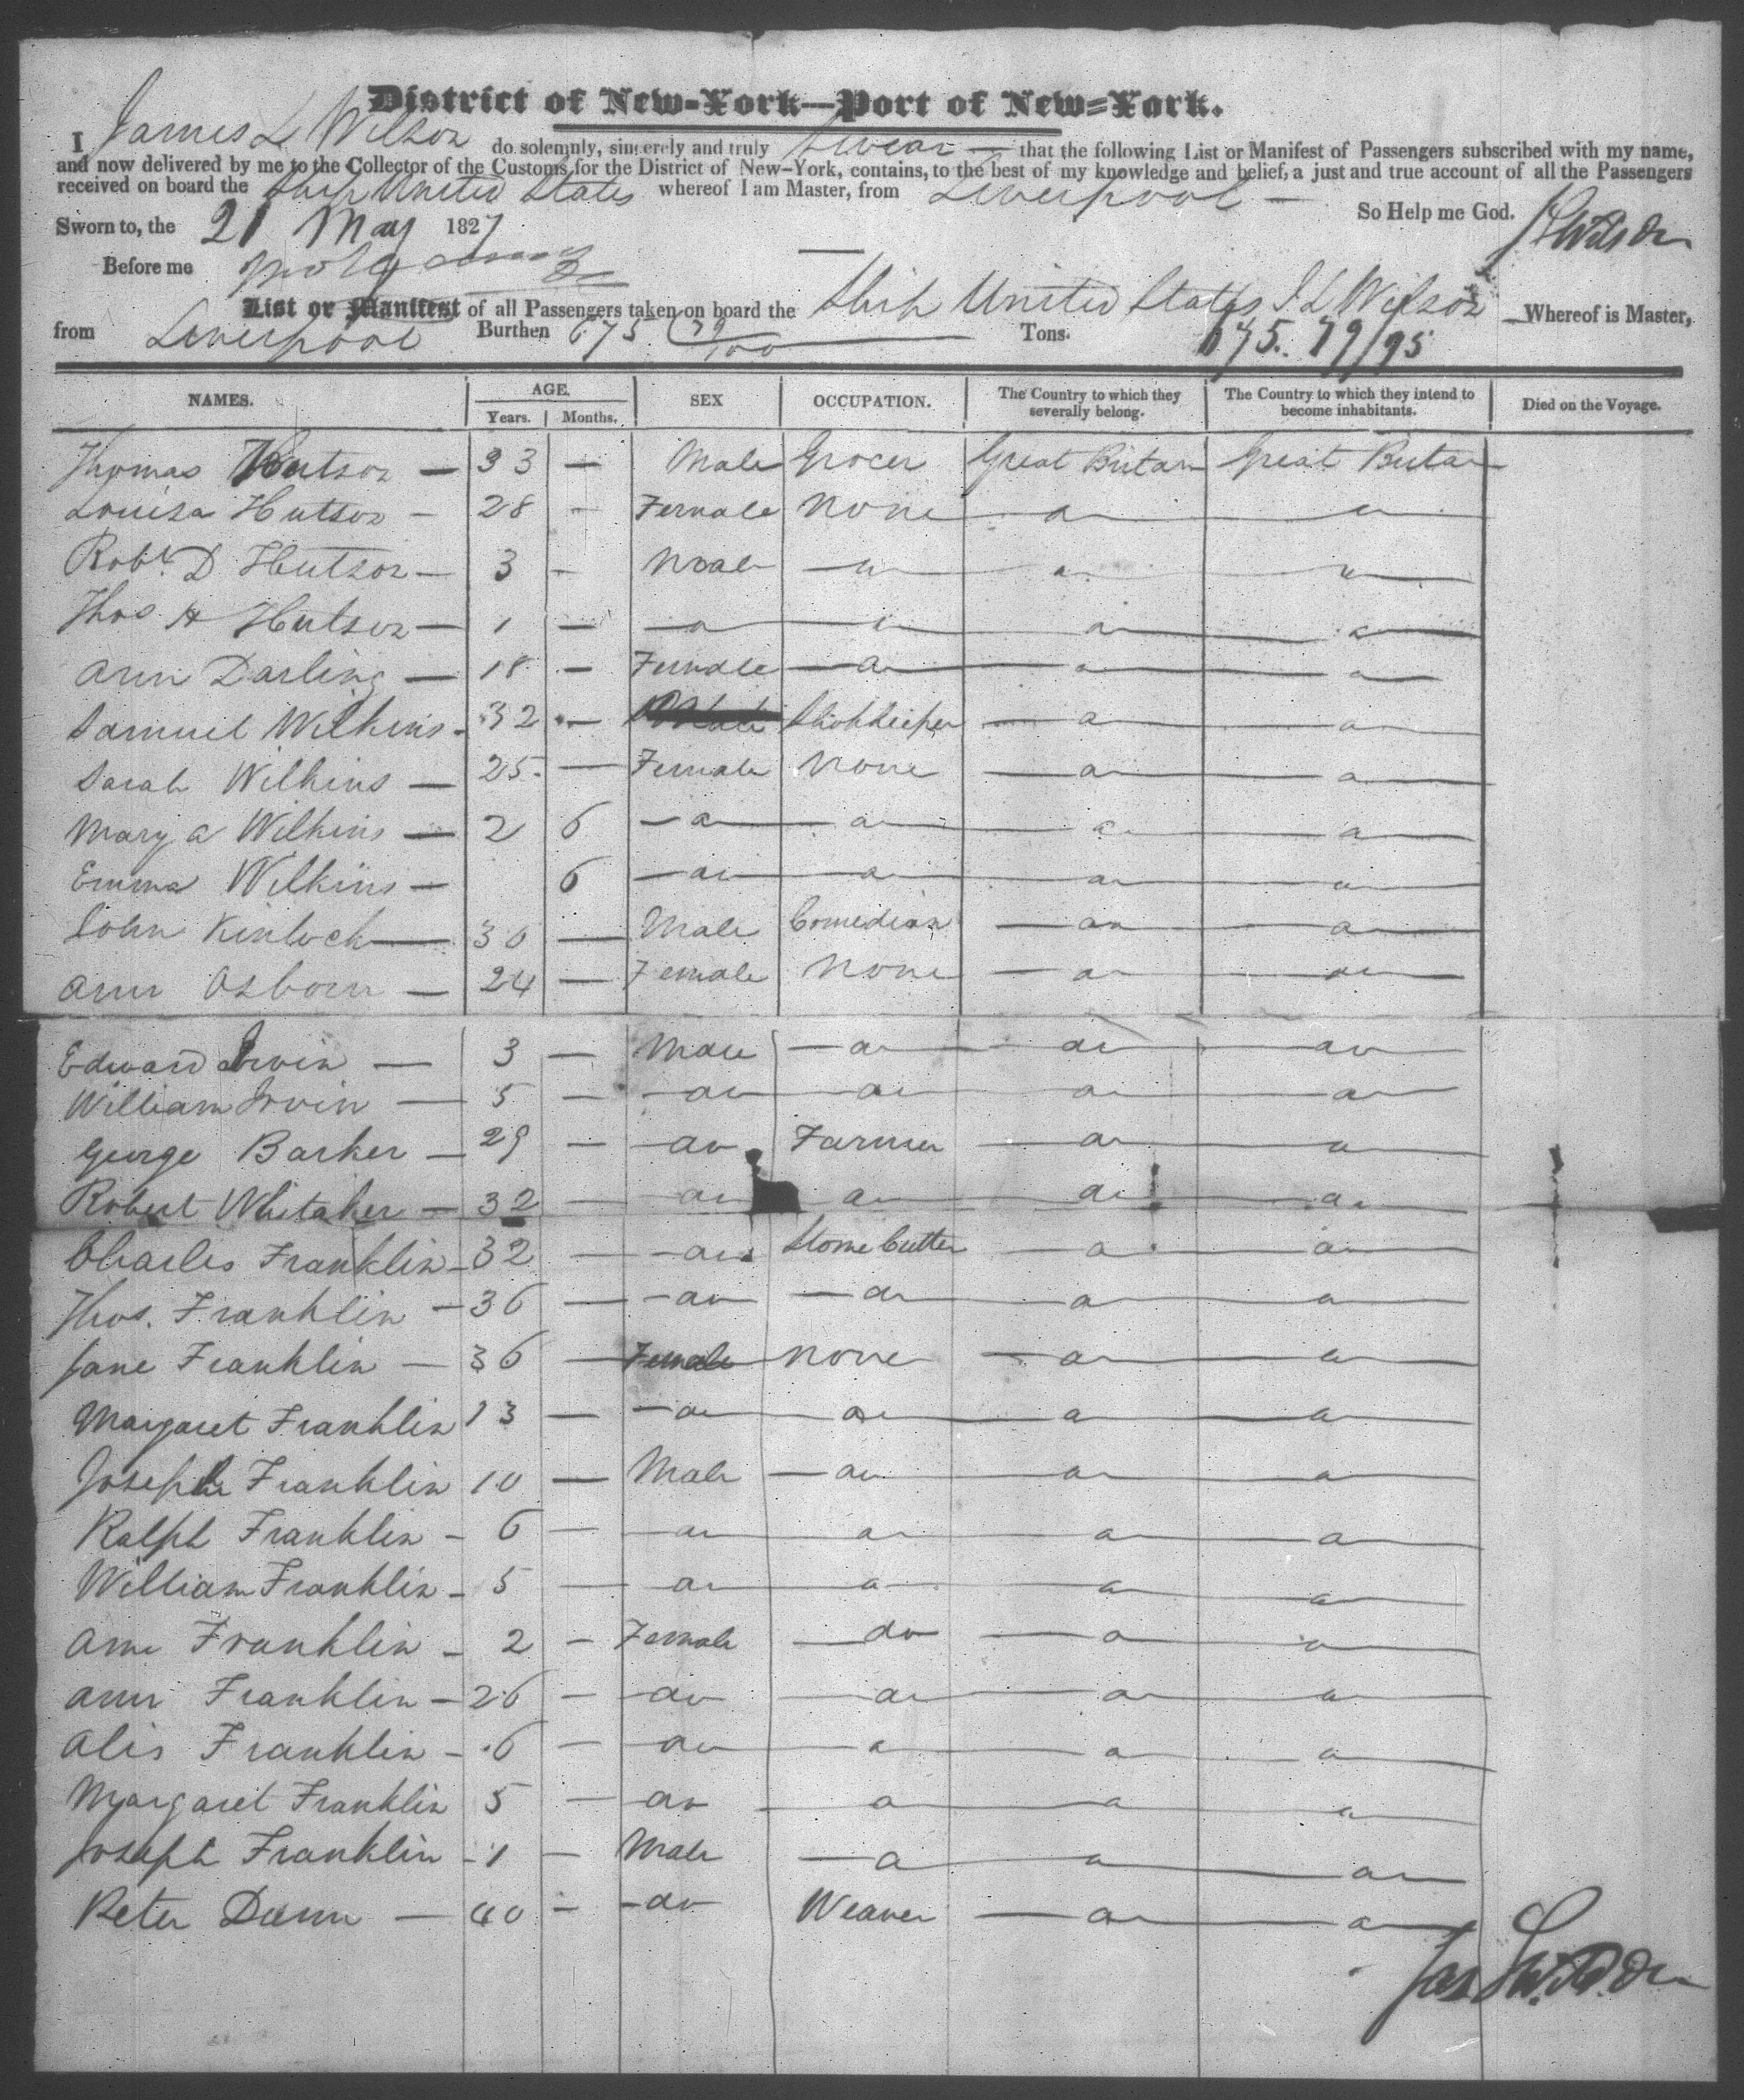 District of New-York—Port of New-York.
I James L Wilson do solemnly, sincerely and truly Swear — that the following List or Manifest of Passengers subscribed with my name,
and now delivered by me to the Collector of the Customs for the District of New-York, contains, to the best of my knowledge and belief, a just and true account of all the Passengers
received on board the Ship United States whereof I am Master, from Liverpool —
So Help me God. Wilson
Sworn to, the 21 May 1827
Before me
List or Manifest of all Passengers taken on board the Ship United States J L Wilson Whereof is Master,
from Liverpool Burthen 675 79/100 Tons. 675. 79/95
NAMES. AGE. SEX OCCUPATION. The Country to which they severally belong. The Country to which they intend to become inhabitants. Died on the Voyage.
Years. Months.
Thomas Hutson — 33 — Male Grocer Great Britan Great Britan
Louisa Hutson — 28 — Female None do do
Robt. D Hutson — 3 — Male do do do
Thos H Hutson — 1 — do do do do
Ann Darling — 18 — Female do do do
Samuel Wilkins - 32 — Male Shopkeeper do do
Sarah Wilkins — 25 — Female None do do
Mary a Wilkins — 2 6 do do do do
Emma Wilkins — 6 do do do do
John Kinloch — 30 — Male Comedian do do
Ann Osborn — 24 — Female None do do
Edward Irvin — 3 — Male do do do
William Irvin — 5 — do do do do
George Barker — 29 — do Farmer do do
Robert Whitaker — 32 — do do do do
Charles Franklin - 32 — do Stone Cutter do do
Thos. Franklin — 36 — do do do do
Jane Franklin — 36 — Female None do do
Margaret Franklin 13 — do do do do
Joseph Franklin 10 — Male do do do
Ralph Franklin - 6 — do do do do
William Franklin - 5 — do do do do
Ann Franklin - 2 — Female do do do
Ann Franklin — 26 — do do do do
Alis Franklin - 6 — do do do do
Margaret Franklin 5 — do do do do
Joseph Franklin - 1 — Male do do do
Peter Dunn — 40 — do Weaver do do
Jas L Wilson